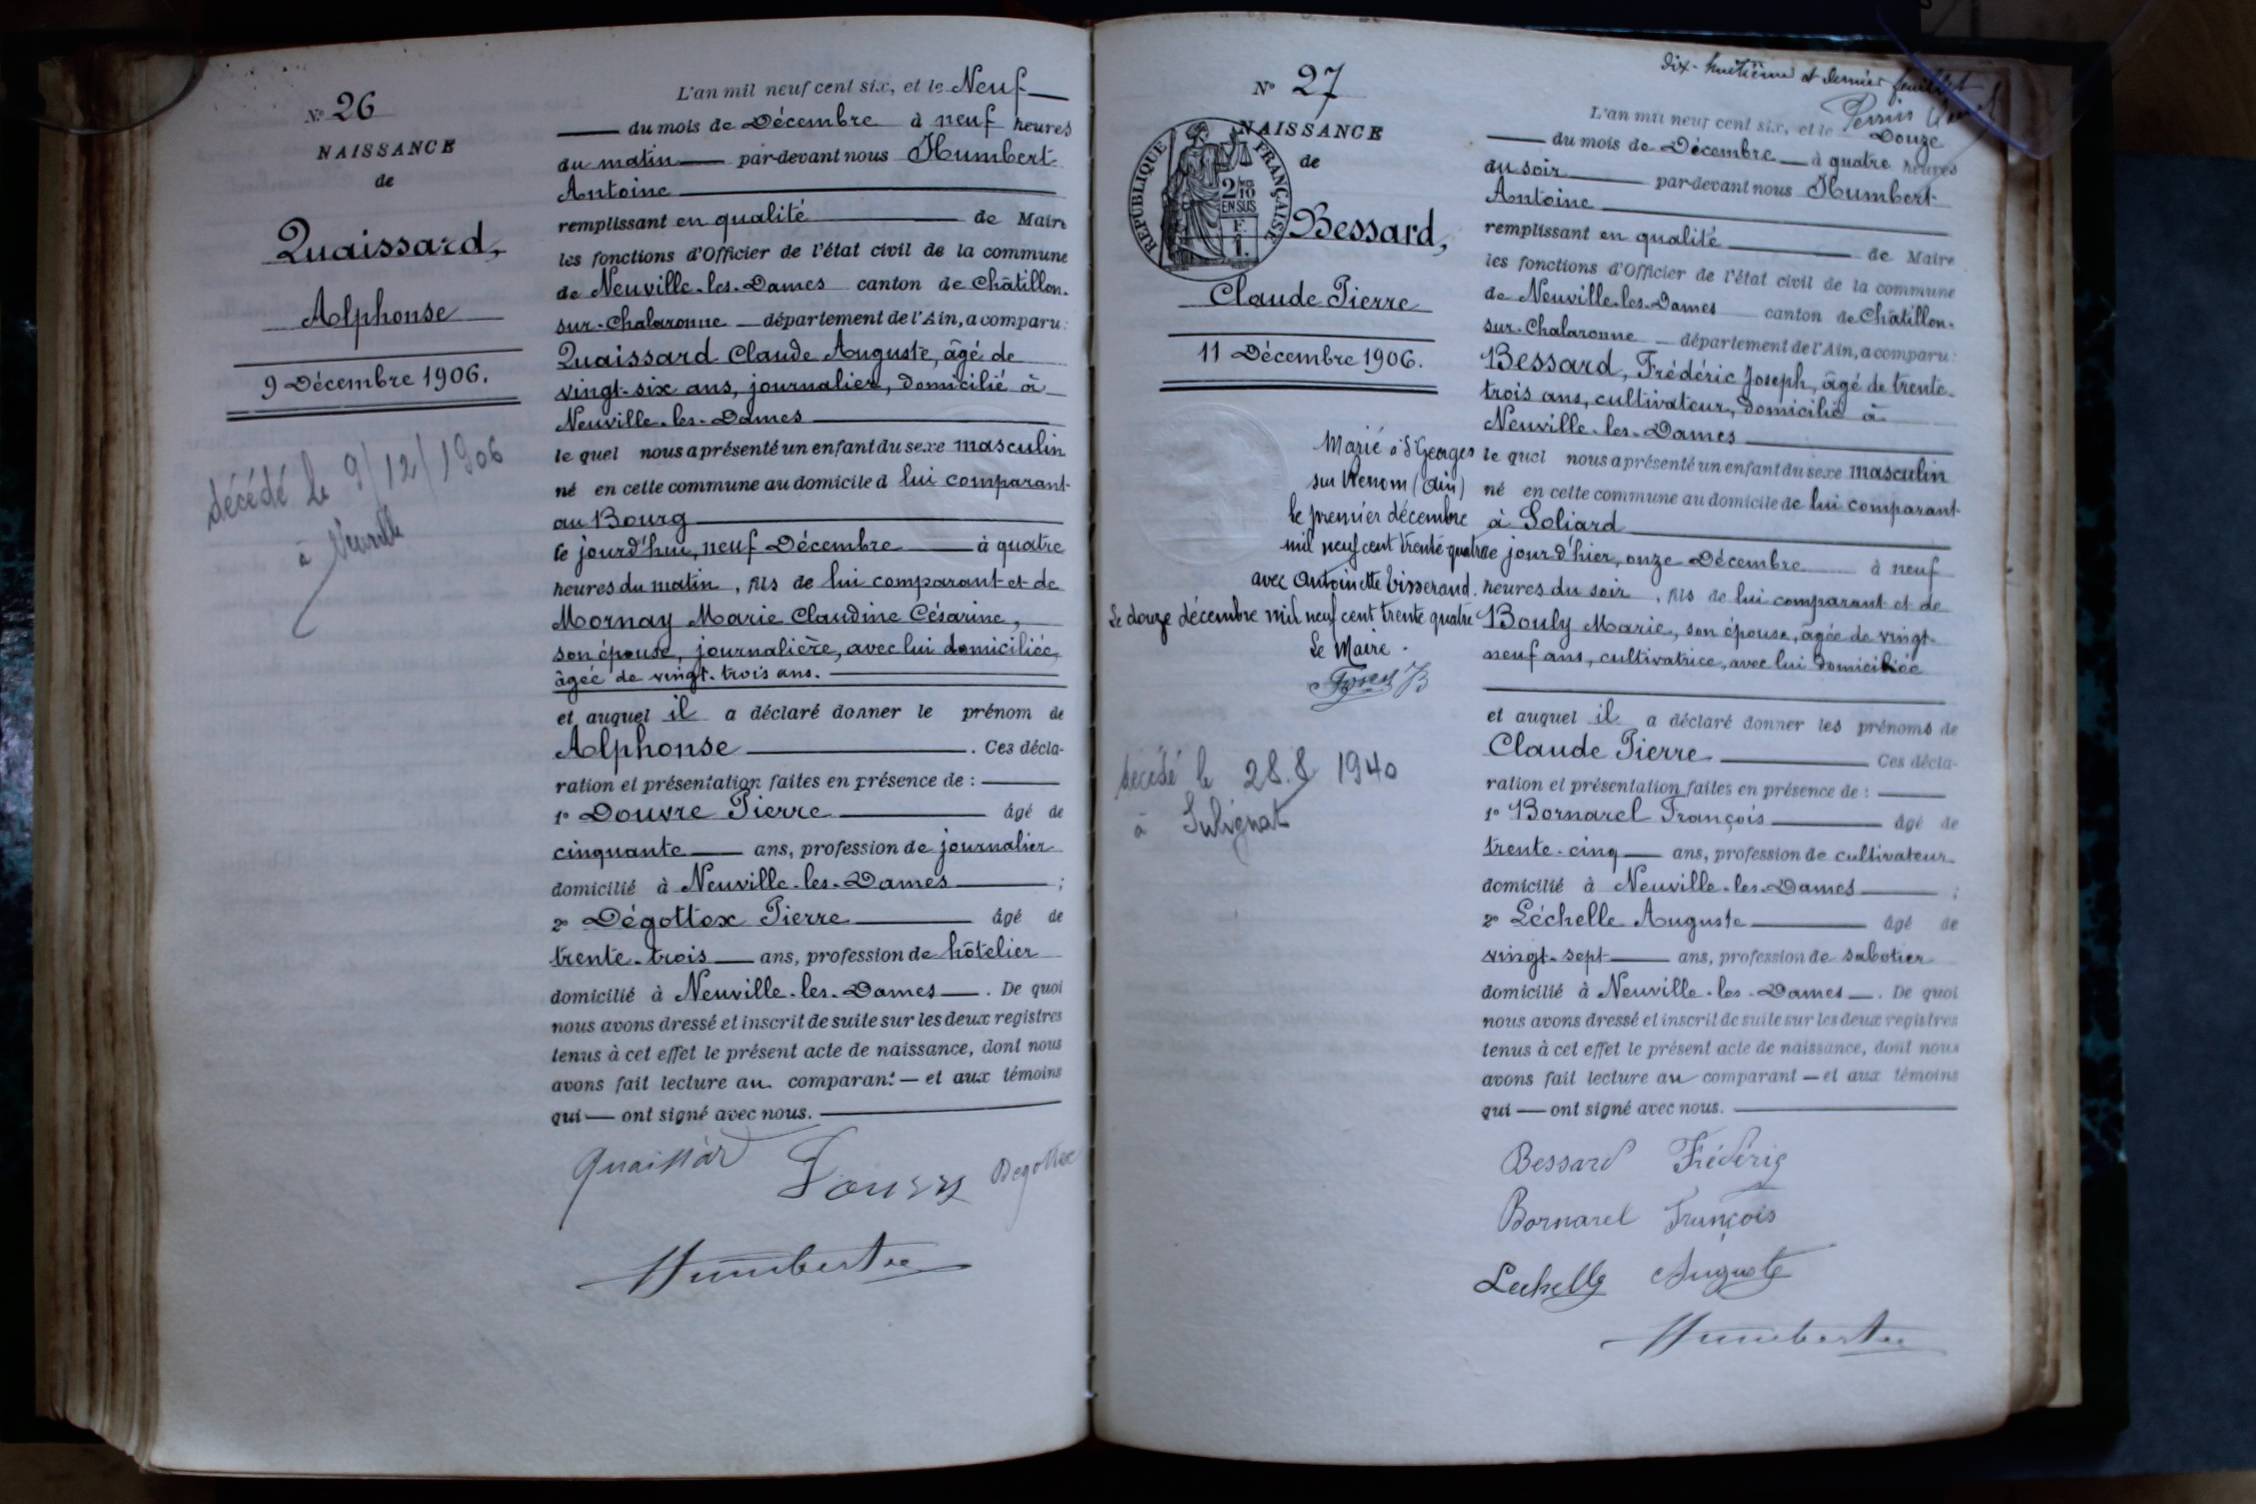 N° 26
NAISSANCE
de
Quaissard,
Alphonse
9 Décembre 1906.
décédé le 9/12/1906
à Neuville
L'an mil neuf cent six, et le Neuf
du mois de Décembre à neuf heures
du matin par-devant nous Humbert
Antoine
remplissant en qualité de Maire
les fonctions d'Officier de l'état civil de la commune
de Neuville-les-Dames canton de Châtillon-
sur-Chalaronne département de l'Ain, a comparu:
Quaissard Claude Auguste, âgé de
vingt-six ans, journalier, domicilié à
Neuville-les-Dames
le quel nous a présenté un enfant du sexe masculin
né en cette commune au domicile d lui comparant
au Bourg
le jourd'hui, neuf Décembre à quatre
heures du matin, fils de lui comparant et de
Mornay Marie Claudine Césarine,
son épouse, journalière, avec lui domiciliée,
âgée de vingt-trois ans.
et auquel il a déclaré donner le prénom de
Alphonse. Ces décla-
ration et présentation faites en présence de :
1° Douvre Pierre âgé de
cinquante ans, profession de journalier
domicilié à Neuville-les-Dames ;
2° Dégottex Pierre âgé de
trente-trois ans, profession de hôtelier
domicilié à Neuville-les-Dames. De quoi
nous avons dressé et inscrit de suite sur les deux registres
tenus à cet effet le présent acte de naissance, dont nous
avons fait lecture au comparant — et aux témoins
qui — ont signé avec nous.
Quaissard Douvre Degottex
Humbert
dix-huitième et dernier feuillet
Perrin
N° 27
NAISSANCE
de
RÉPUBLIQUE FRANÇAISE
2/10
EN SUS
F.
1.
Bessard,
Claude Pierre
11 Décembre 1906.
Marié à St Georges
sur Renom (Ain)
le premier décembre
mil neuf cent trente quatre
avec Antoinette Tisserand.
Le douze décembre mil neuf cent trente quatre
Le Maire.
décédé le 28.8 1940
à Sulignat
L'an mil neuf cent six, et le Douze
du mois de Décembre à quatre heures
du soir par-devant nous Humbert
Antoine
remplissant en qualité de Maire
les fonctions d'Officier de l'état civil de la commune
de Neuville-les-Dames canton de Châtillon-
sur-Chalaronne département de l'Ain, a comparu:
Bessard, Frédéric Joseph, âgé de trente-
trois ans, cultivateur, domicilié à
Neuville-les-Dames
le quel nous a présenté un enfant du sexe masculin
né en cette commune au domicile de lui comparant
à Soliard
le jour d'hier, onze Décembre à neuf
heures du soir, fils de lui comparant et de
Bouly Marie, son épouse, âgée de vingt-
neuf ans, cultivatrice, avec lui domiciliée
et auquel il a déclaré donner les prénoms de
Claude Pierre Ces décla-
ration et présentation faites en présence de :
1° Bornarel François âgé de
trente-cinq ans, profession de cultivateur
domicilié à Neuville-les-Dames ;
2° Léchelle Auguste âgé de
vingt-sept ans, profession de sabotier
domicilié à Neuville-les-Dames. De quoi
nous avons dressé et inscrit de suite sur les deux registres
tenus à cet effet le présent acte de naissance, dont nous
avons fait lecture au comparant — et aux témoins
qui — ont signé avec nous.
Bessard Frédéric
Bornarel François
Lechelle Auguste
Humbert